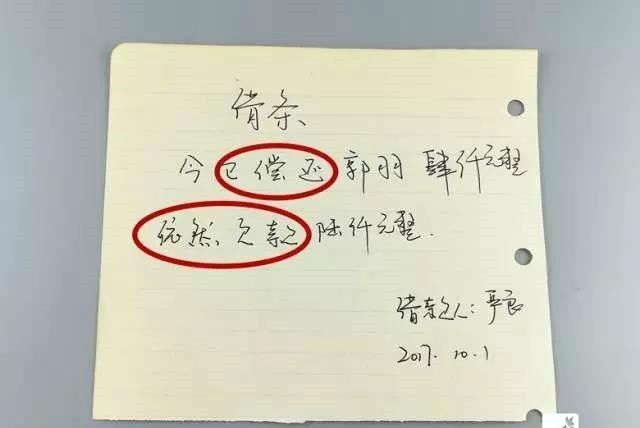 借条
今已偿还郭羽肆仟元整
依然欠款陆仟元整.
借款人:严良
2017.10.1